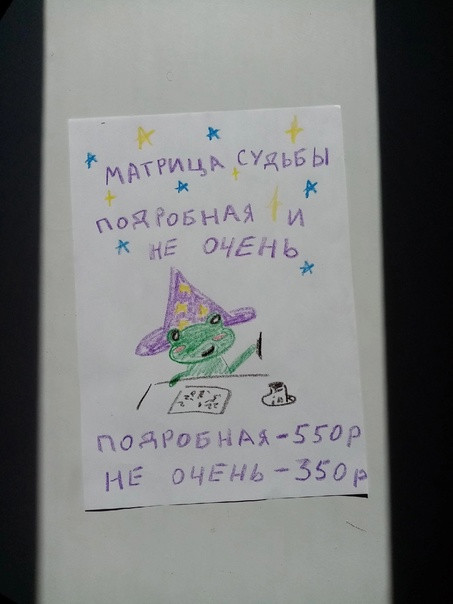 МАТРИЦА СУДЬБЫ
ПОДРОБНАЯ И
НЕ ОЧЕНЬ
ПОДРОБНАЯ-550р
НЕ ОЧЕНЬ-350р